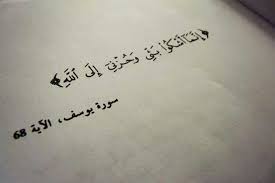 ﴿إِنَّمَا أَشْكُو بَثِّي وَحُزْنِي إِلَى اللَّهِ﴾
سورة يوسف، الآية 68